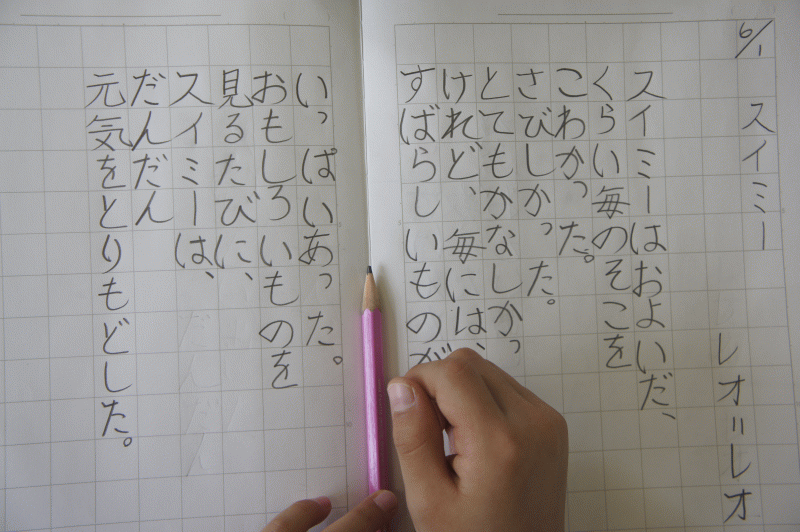 6/1
スイミー
レオ=レオ
スイミーはおよいだ、
くらい毎のそこを
こわかった。
さびしかった。
とてもかなしかっ
けれど、毎には、
すばらしいものが
いっぱいあった。
おもしろいものを
見るたびに、
スイミーは、
だんだん
元気をとりもどした。